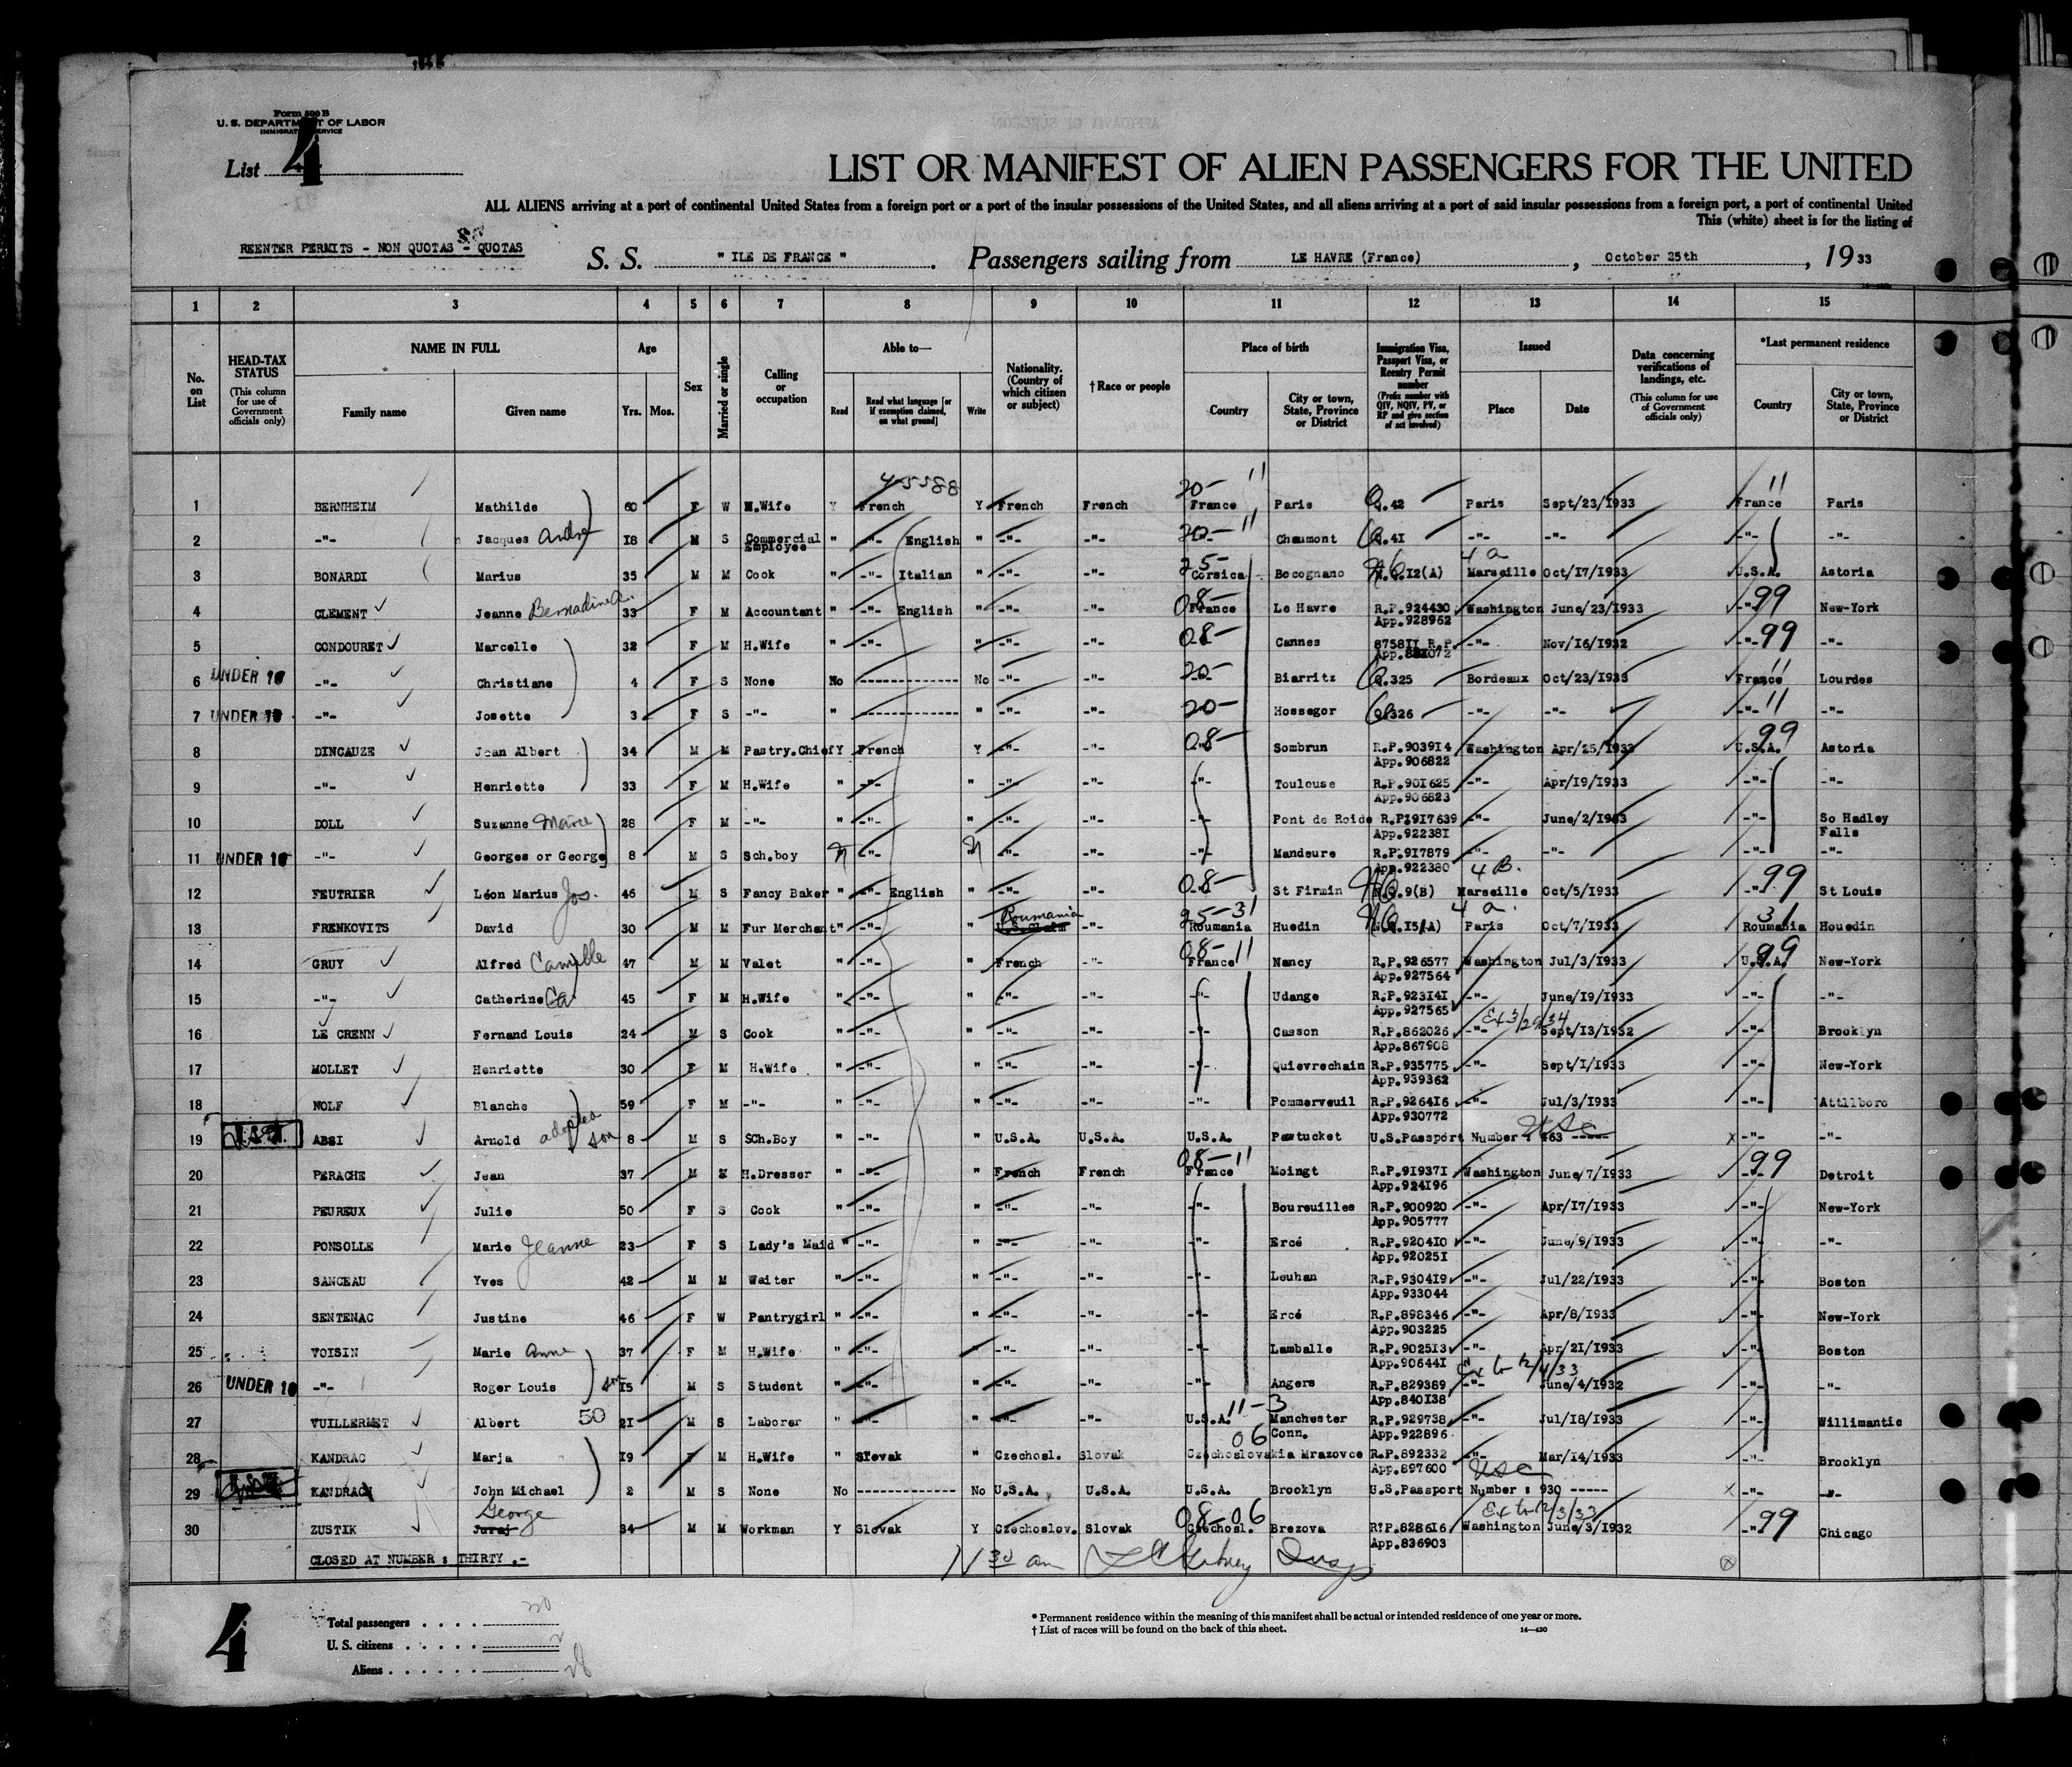 Form 500 B
U. S. DEPARTMENT OF LABOR
IMMIGRATION SERVICE
List 4
LIST OR MANIFEST OF ALIEN PASSENGERS FOR THE UNITED
ALL ALIENS arriving at a port of continental United States from a foreign port or a port of the insular possessions of the United States, and all aliens arriving at a port of said insular possessions from a foreign port, a port of continental United
This (white) sheet is for the listing of
REENTER PERMITS - NON QUOTAS - QUOTAS
S. S. " ILE DE FRANCE " . Passengers sailing from LE HAVRE (France) , October 25th , 19 33
1 2 3 4 5 6 7 8 9 10 11 12 13 14 15
No. on List
HEAD-TAX STATUS (This column for use of Government officials only)
NAME IN FULL Family name Given name
Age Yrs. Mos.
Sex
Married or single
Calling or occupation
Able to— Read Read what language [or if exemption claimed, on what ground] Write
Nationality. (Country of which citizen or subject)
† Race or people
Place of birth Country City or town, State, Province or District
Immigration Visa, Passport Visa, or Reentry Permit number (Prefix number with QIV, NQIV, PV, or RP and give section of act involved)
Issued Place Date
Data concerning verifications of landings, etc. (This column for use of Government officials only)
*Last permanent residence Country City or town, State, Province or District
45588 20- 11 11
1 BERNHEIM Mathilde 60 F W H.Wife Y French Y French French France Paris Q.42 Paris Sept/23/1933 France Paris
2 -"- Jacques André 18 M S Commercial Employee " -"- English " -"- -"- 20- 11 Chaumont Q.41 -"- -"- -"- -"-
25- 4 a
3 BONARDI Marius 35 M M Cook " -"- Italian " -"- -"- Corsica Bocognano N.Q.12(A) Marseille Oct/17/1933 U.S.A. Astoria
4 CLEMENT Jeanne Bernadine 33 F M Accountant " -"- English " -"- -"- 08- France Le Havre R.P.924430 Washington June/23/1933 -"- 99 New-York
App.928962
5 CONDOURET Marcelle 32 F M H.Wife " -"- " -"- -"- 08- Cannes 875811 R.P. -"- Nov/16/1932 -"- 99 -"-
App.881072
6 UNDER 16 -"- Christiane 4 F S None No ------------ No -"- -"- 20- Biarritz Q.325 Bordeaux Oct/23/1933 France 11 Lourdes
7 UNDER 16 -"- Josette 3 F S -"- " ------------ " -"- -"- 20- Hossegor Q.326 -"- -"- -"- 11 -"-
8 DINCAUZE Jean Albert 34 M M Pastry.Chief Y French Y -"- -"- 08- Sombrun R.P.903914 Washington Apr/25/1933 U.S.A. 99 Astoria
App.906822
9 -"- Henriette 33 F M H.Wife " -"- " -"- -"- -"- Toulouse R.P.901625 -"- Apr/19/1933 -"- -"-
App.906823
10 DOLL Suzanne Marie 28 F M -"- " -"- " -"- -"- -"- Pont de Roide R.P.917639 -"- June/2/1933 -"- So Hadley Falls
App.922381
11 UNDER 16 -"- Georges or George 8 M S Sch.boy -"- -"- -"- -"- Mandeure R.P.917879 -"- -"- -"- -"-
App.922380 4 B.
12 FEUTRIER Léon Marius Jos. 46 M S Fancy Baker " -"- English " -"- -"- 08- St Firmin N.Q.9(B) Marseille Oct/5/1933 -"- 99 St Louis
Roumania 25-31 4 a. 31
13 FRENKOVITS David 30 M M Fur Merchant " -"- " -"- Roumania Huedin N.Q.15(A) Paris Oct/7/1933 Roumania Houedin
14 GRUY Alfred Camille 47 M M Valet " -"- " French -"- 08-11 France Nancy R.P.926577 Washington Jul/3/1933 U.S.A. 99 New-York
App.927564
15 -"- Catherine 45 F M H.Wife " -"- " -"- -"- -"- Udange R.P.923141 -"- June/19/1933 -"- -"-
App.927565 Ex 3/29/34
16 LE CRENN Fernand Louis 24 M S Cook " -"- " -"- -"- -"- Casson R.P.862026 -"- Sept/13/1932 -"- Brooklyn
App.867908
17 MOLLET Henriette 30 F M H.Wife " -"- " -"- -"- -"- Quievrechain R.P.935775 -"- Sept/1/1933 -"- New-York
App.939362
18 NOLF Blanche 59 F M -"- " -"- " -"- -"- -"- Pommerveuil R.P.926416 -"- Jul/3/1933 -"- Attlboro
App.930772
19 ABSI Arnold adopted son 8 M S SCh.Boy " -"- " U.S.A. U.S.A. U.S.A. Pawtucket U.S.Passport Number : 463 ----- USC x -"- -"-
20 PERACHE Jean 37 M M H.Dresser " -"- " French French 08-11 France Moingt R.P.919371 Washington June/7/1933 -"- 99 Detroit
App.924196
21 PEUREUX Julie 50 F S Cook " -"- " -"- -"- -"- Boureuilles R.P.900920 -"- Apr/17/1933 -"- New-York
App.905777
22 PONSOLLE Marie Jeanne 23 F S Lady's Maid " -"- " -"- -"- -"- Ercé R.P.920410 -"- June/9/1933 -"- -"-
App.920251
23 SANCEAU Yves 42 M M Waiter " -"- " -"- -"- -"- Leuhan R.P.930419 -"- Jul/22/1933 -"- Boston
App.933044
24 SENTENAC Justine 46 F W Pantrygirl " -"- " -"- -"- -"- Ercé R.P.898346 -"- Apr/8/1933 -"- New-York
App.903225
25 VOISIN Marie Anne 37 F M H.Wife " -"- -"- -"- -"- Lamballe R.P.902513 -"- Apr/21/1933 -"- Boston
App.906441 Ex to 12/4/33
26 UNDER 16 -"- Roger Louis son 15 M S Student " -"- " -"- -"- -"- Angers R.P.829389 -"- June/4/1932 -"- -"-
App.840138
27 VUILLERMET Albert 50 21 M S Laborer " -"- " -"- -"- U.S.A. 11-3 Manchester Conn. R.P.929738 -"- Jul/18/1933 -"- Willimantic
App.922896
06
28 KANDRAC Marja 19 F M H.Wife " Slovak " Czechosl. Slovak Czechoslovakia Mrazovce R.P.892332 -"- Mar/14/1933 -"- Brooklyn
App.897600 USC
29 KANDRACH John Michael 2 M S None No ------------ No U.S.A. U.S.A. U.S.A. Brooklyn U.S.Passport Number : 930 ----- x -"- -"-
George 08-06 Ex to 12/3/33
30 ZUSTIK Juraj 34 M M Workman Y Slovak Y Czechoslov. Slovak Czechosl. Brezova R.P.828616 Washington June/3/1932 -"- 99 Chicago
App.836903
CLOSED AT NUMBER : THIRTY .-
11 30 am Insp
4
Total passengers . . . . 30
U. S. citizens . . . . . 2
Aliens . . . . . . 28
* Permanent residence within the meaning of this manifest shall be actual or intended residence of one year or more.
† List of races will be found on the back of this sheet.
14—430